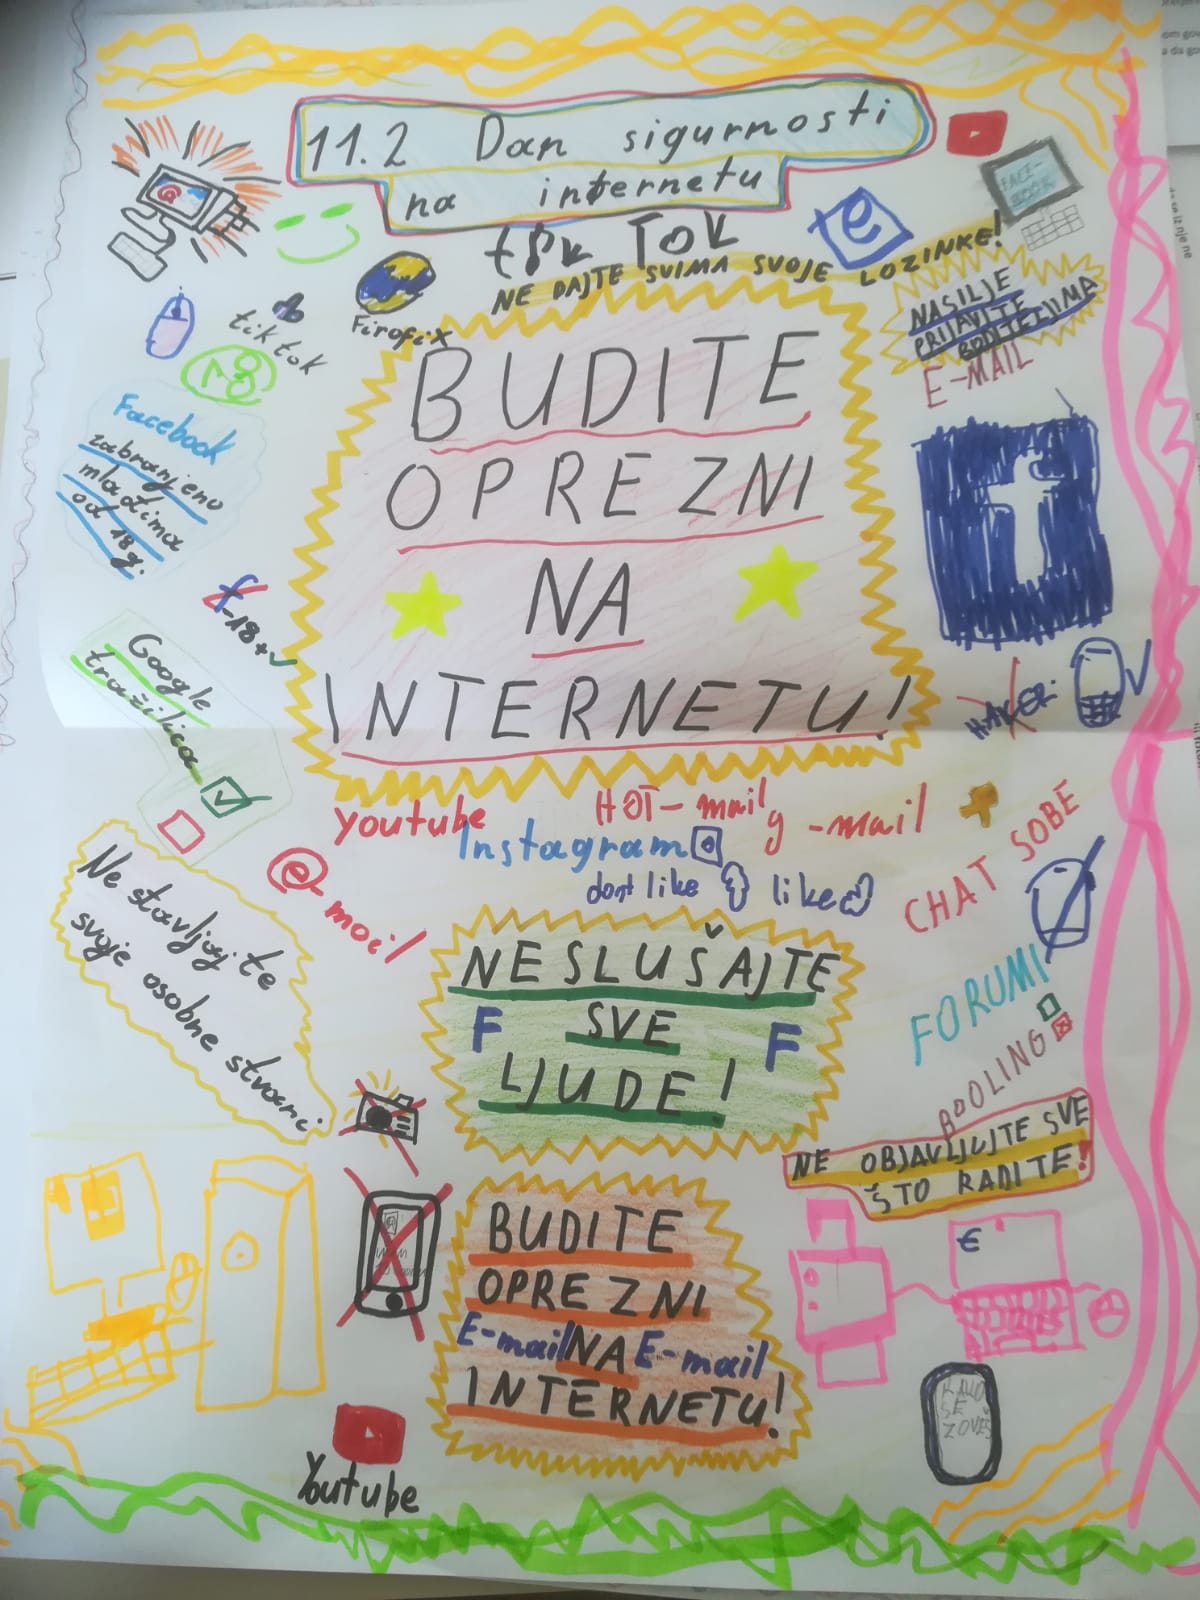 11.2 Dan sigurnosti
na internetu
FACE-
BOOK
TOK
NE DAJTE SVIMA SVOJE LOZINKE!
NASILJE
PRIJAVITE
E-MAIL
tik tok
Firofix
BUDITE
OPREZNI
NA
INTERNETU!
Facebook
zabranjeno
mlađima
od 18g.
f
f-18+
Google
tražilica
HAKER
youtube
HOT-mail
g-mail
Instagram
dont like
like
@-mail
CHAT SOBE
FORUMI
Ne stavljajte
svoje osobne stvari
NESLUŠAJTE
F SVE F
LJUDE!
NE OBJAVLJUJTE SVE
ŠTO RADITE!
BUDITE
OPREZNI
E-mail NA E-mail
INTERNETU!
€
KAKO
SE
ZOVEŠ
Youtube